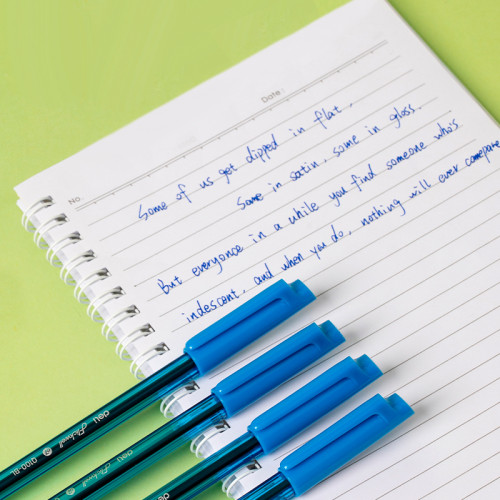 Date:
No.
Some of us get dipped in flat,
Some in satin, some in gloss.
But everyonce in a while you find someone who's
indescent, and when you do, nothing will ever compare
deli
Q100-BL
deli
deli